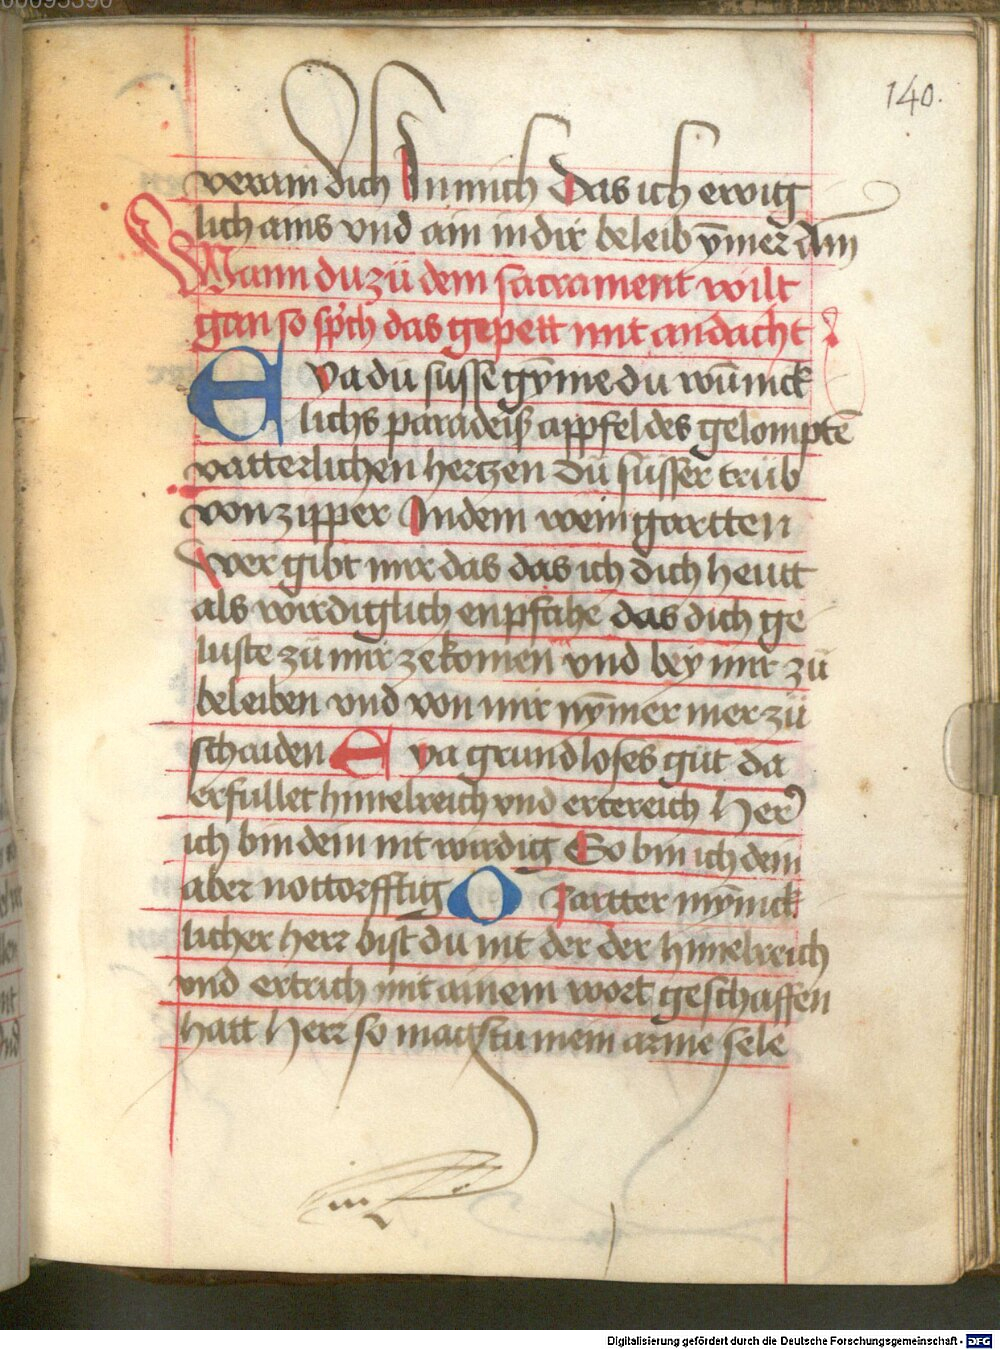 140.
verain dich In mich Das ich ewig
lich ains vnd ain in dir beleib ȳmer Am̄
Wann du zů dem sacrament wilt
gan so sp̄ch das gepett mit andacht
Eya du süsse gȳme du wūnick
lichs paradeiß appfel des gelompten̄
vatterlichen hertzen Dü süsser trüb
von zipper In dem weingartten
wer gibt mir das das ich dich heutt
als wirdiglich enpfahe das dich ge
luste zü mir ze komen vnd bey mir zü
beleiben vnd von mir nȳmer mer zü
schaiden Eya grundloses güt da
erfullet himelreich vnd ertereich Her
ich bin dein nit wirdig So bin ich dein
aber nottorfftig O Zartter mȳnick
licher herr bist du nit der der himelreich
vnd ertrich mit ainem wort geschaffen
hatt Herr so magstu mein arme sele
Digitalisierung gefördert durch die Deutsche Forschungsgemeinschaft - DFG